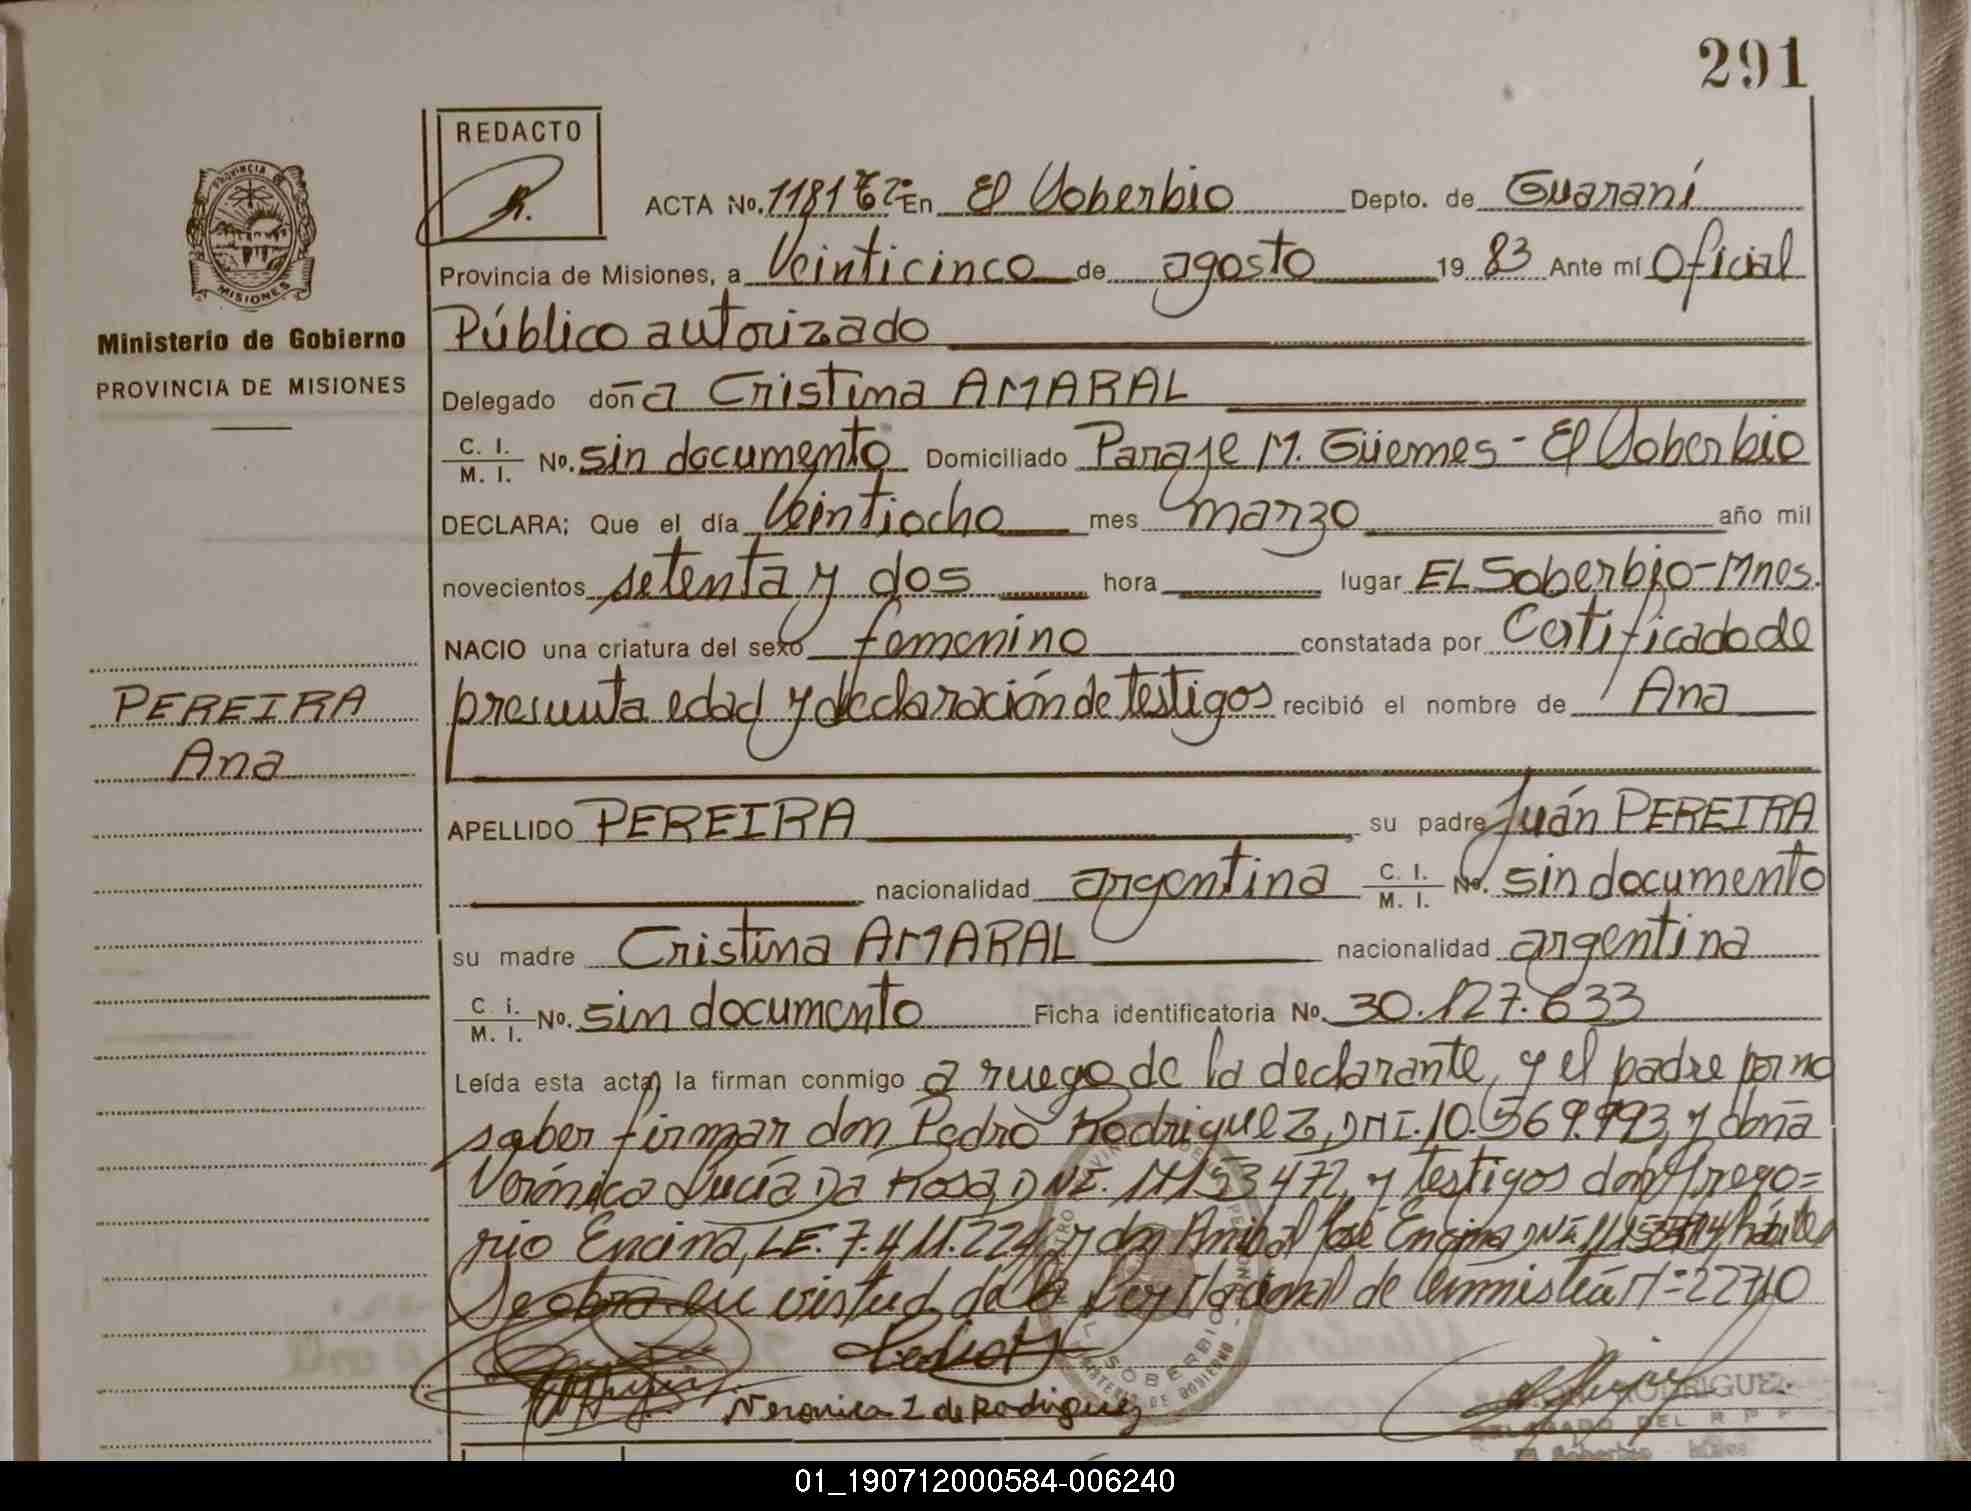 291
REDACTO
ACTA No. 1181 Tº 2º En El Soberbio Depto. de Guaraní
Provincia de Misiones, a Veinticinco de agosto 19 83 Ante mí Oficial
Público autorizado
Delegado doña Cristina AMARAL
C. I. M. I. No. sin documento Domiciliado Paraje M. Güemes - El Soberbio
DECLARA; Que el día Veintiocho mes marzo año mil
novecientos setenta y dos hora lugar EL Soberbio-Mnes.
NACIO una criatura del sexo femenino constatada por Certificado de
presunta edad y declaración de testigos recibió el nombre de Ana
APELLIDO PEREIRA su padre Juán PEREIRA
nacionalidad argentina C. I. M. I. No. sin documento
su madre Cristina AMARAL nacionalidad argentina
C. I. M. I. No. sin documento Ficha identificatoria No. 30.127.633
Leída esta acta, la firman conmigo a ruego de la declarante, y el padre por no
saber firmar don Pedro Rodriguez, DNI. 10.569.993, y doña
Verónica Lucía Da Rosa, DNI. y testigos don Grego=
rio Encina, LE. 7.411.224, y don Anibal José Encina DNI. hábiles
Se obra en virtud de la Ley Nacional de Amnistía Nº 22710
Veronica L de Rodriguez
RODRIGUEZ
PROVINCIA DE MISIONES
Ministerio de Gobierno
PROVINCIA DE MISIONES
PEREIRA
Ana
EL SOBERBIO
MINISTERIO DE GOBIERNO
DELEGADO DEL R P P
El Soberbio
01_190712000584-006240